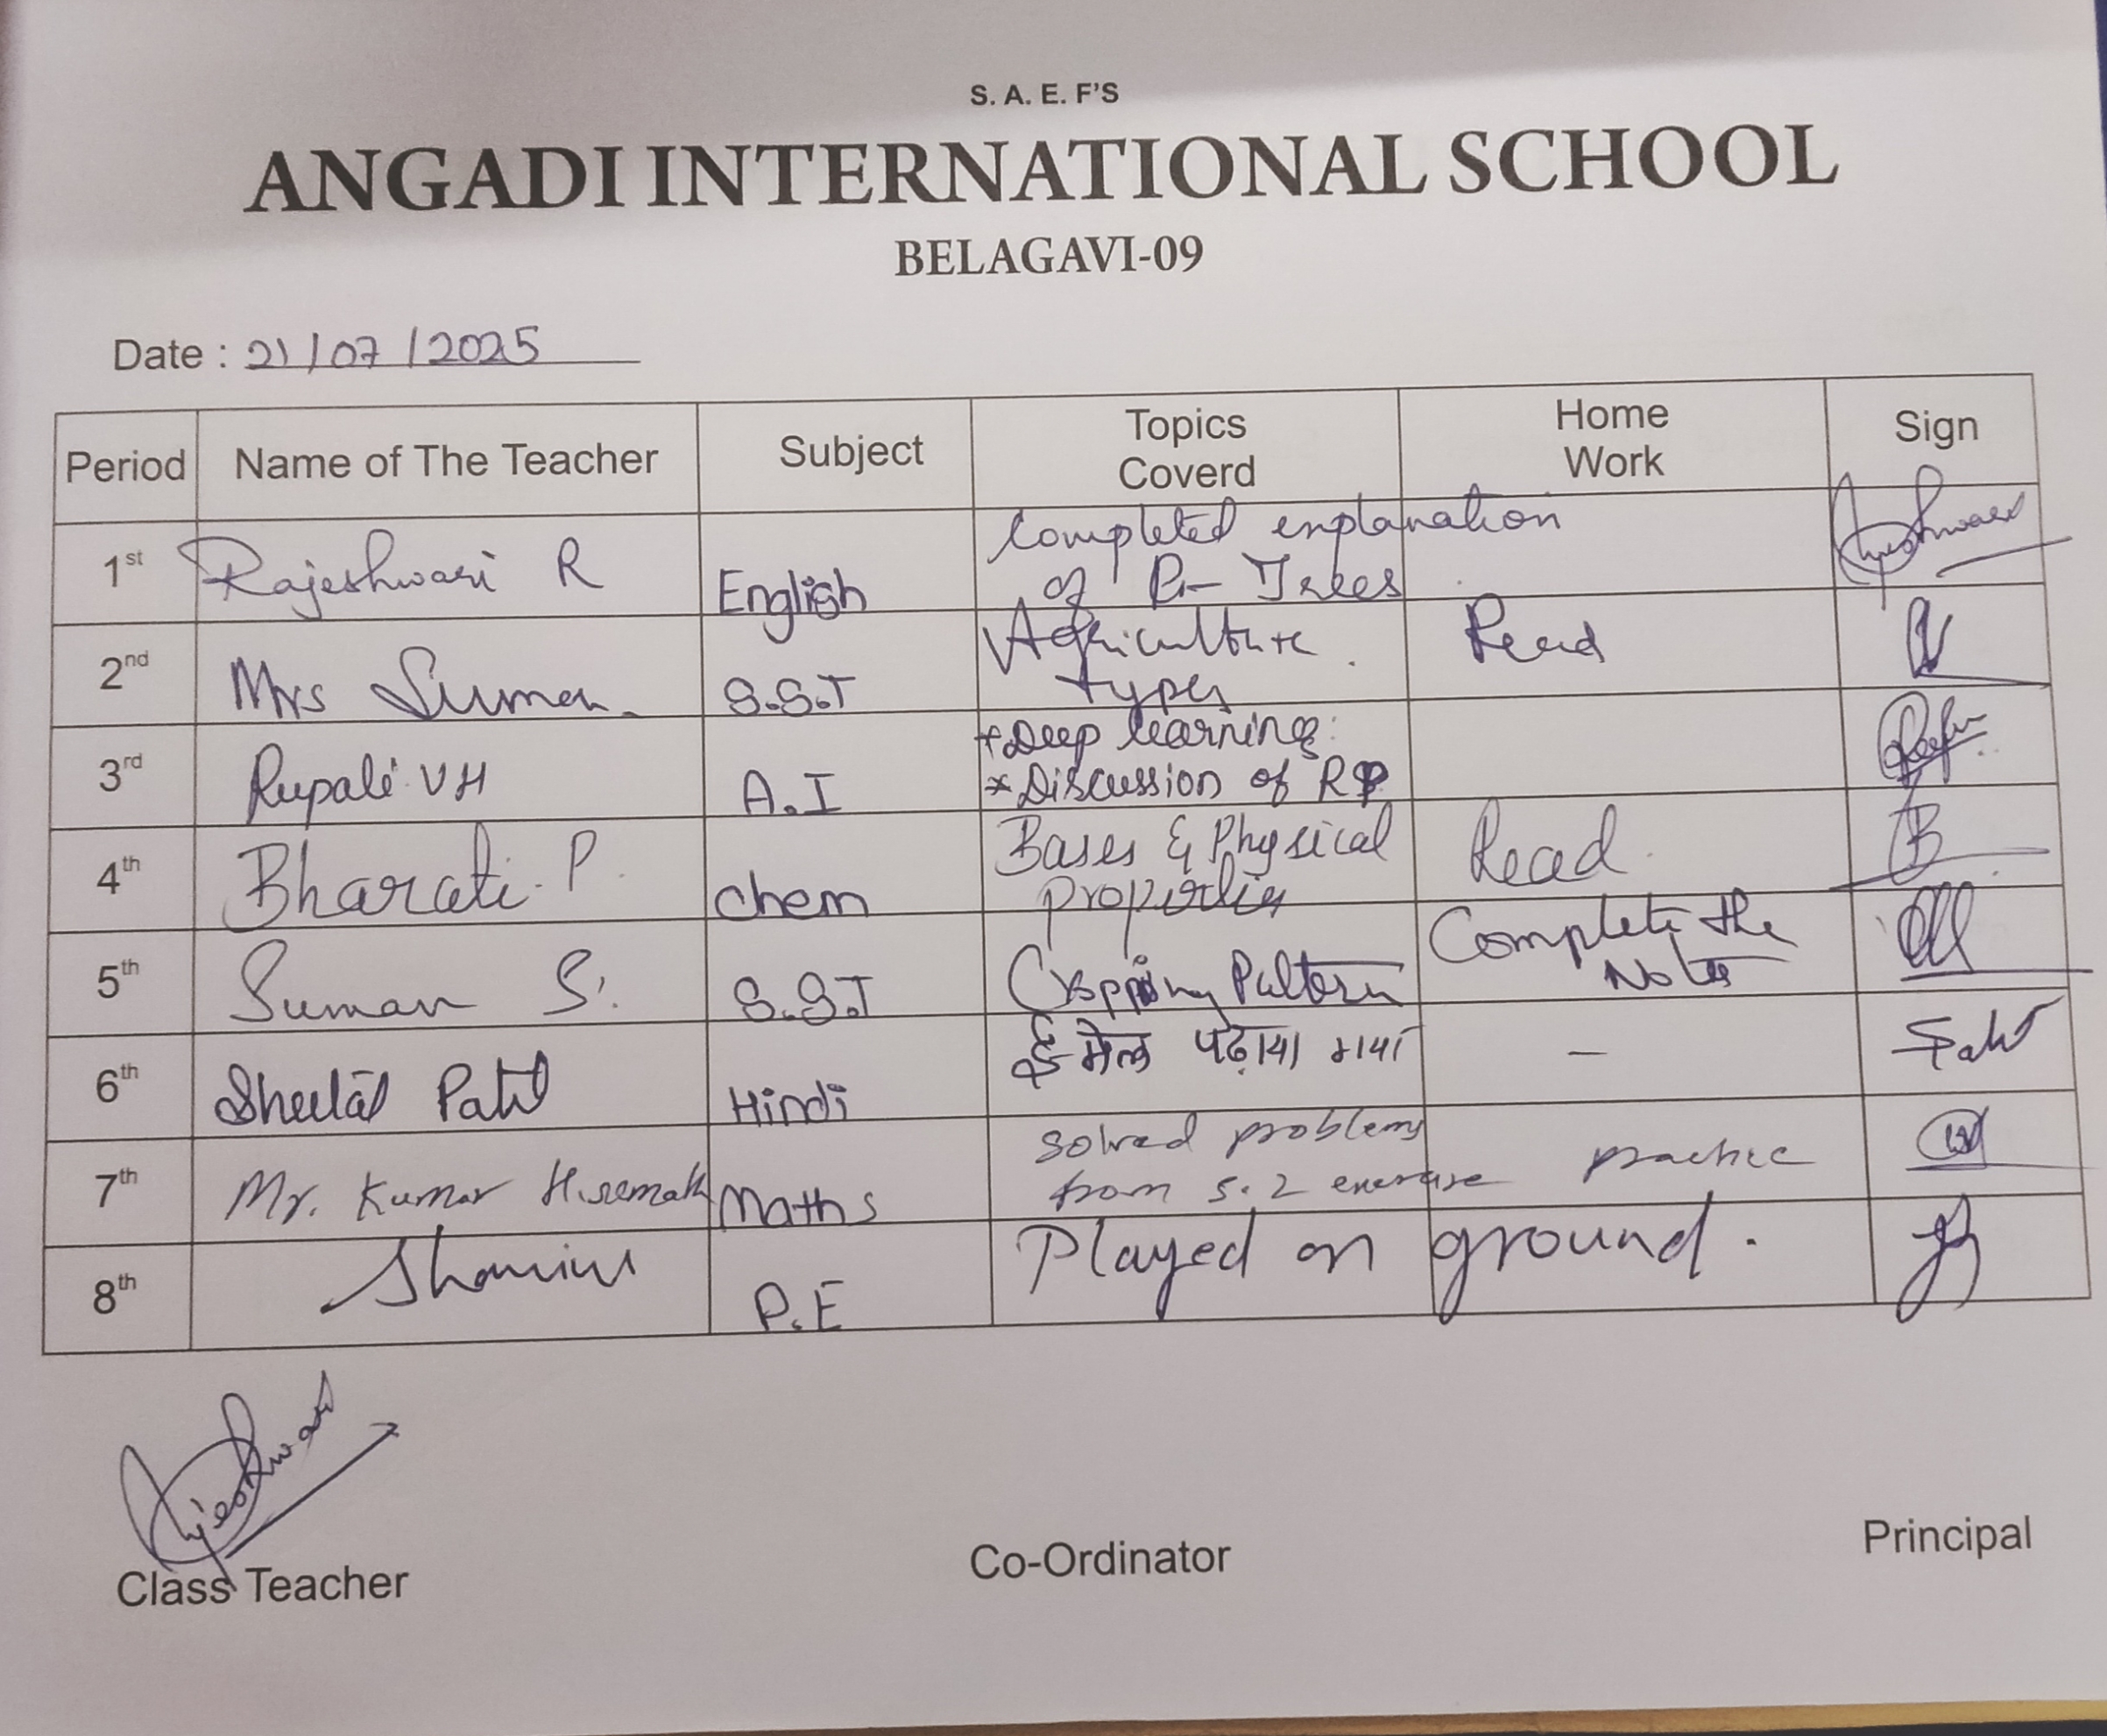 S. A. E. F'S
ANGADI INTERNATIONAL SCHOOL
BELAGAVI-09
Date : 21/07/2025
Period Name of The Teacher Subject Topics Coverd Home Work Sign
1st Rajeshwari R English Completed explanation of P- Trees
2nd Mrs Suman S.S.T Agriculture types Read
3rd Rupali VH A.I *Deep learning *Discussion of RP
4th Bharati P. chem Bases & Physical properties Read
5th Suman S. S.S.T Cropping Pattern Complete the Notes
6th Sheetal Patil Hindi ई-मेल पढ़ाया गया —
7th Mr. Kumar Hiremath Maths solved problems from 5.2 exercise practice
8th P.E Played on ground.
Class Teacher Co-Ordinator Principal